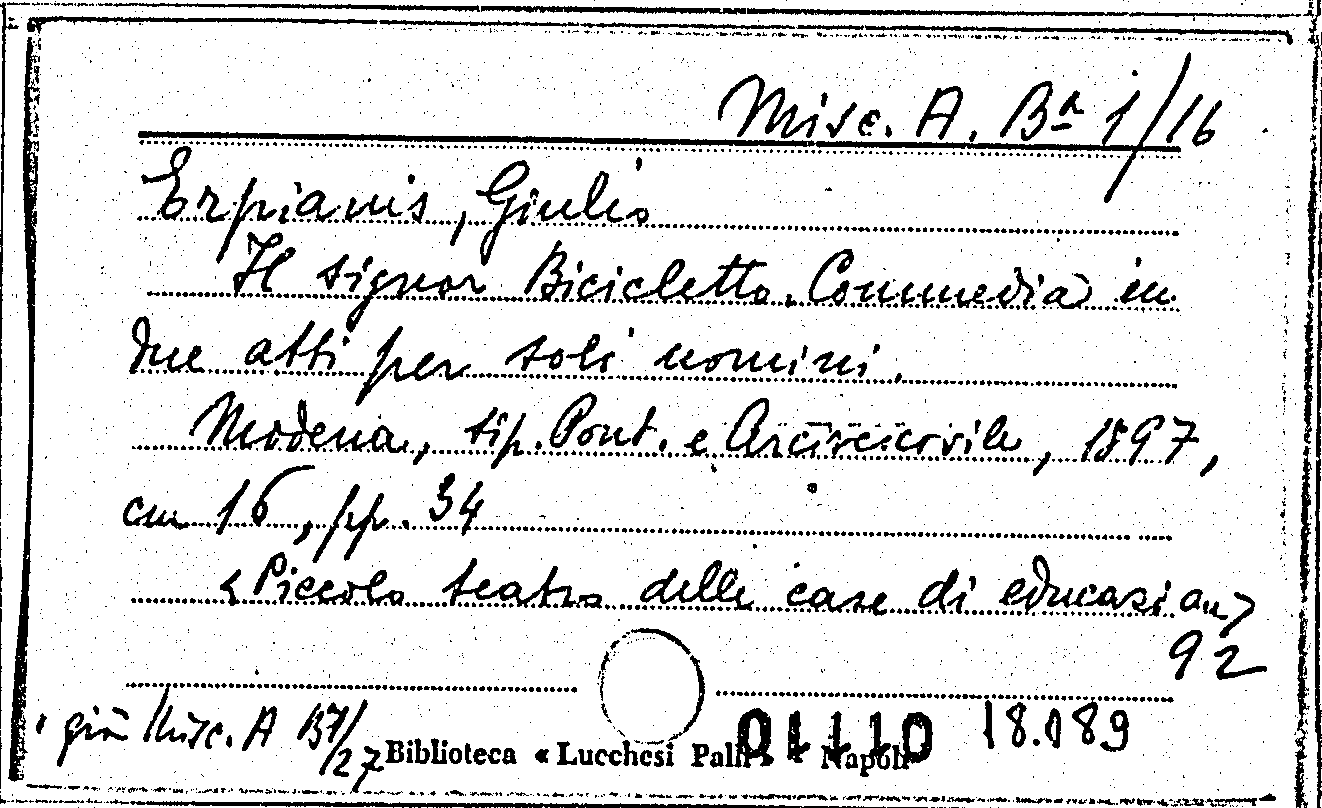 Misc. A. Bª 1/16
Erpianis, Giulio
Il signor Bicicletta. Commedia in
due atti per soli uomini.
Modena, tip. Pont. e Arcivescovile, 1897,
cm 16, pp. 34
<Piccolo teatro delle case di educazion>
92
già Misc. A B7/27
01110 18.089
Biblioteca « Lucchesi Palli » - Napoli